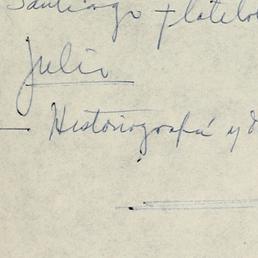 Santiago
Julio
— Historiografía y